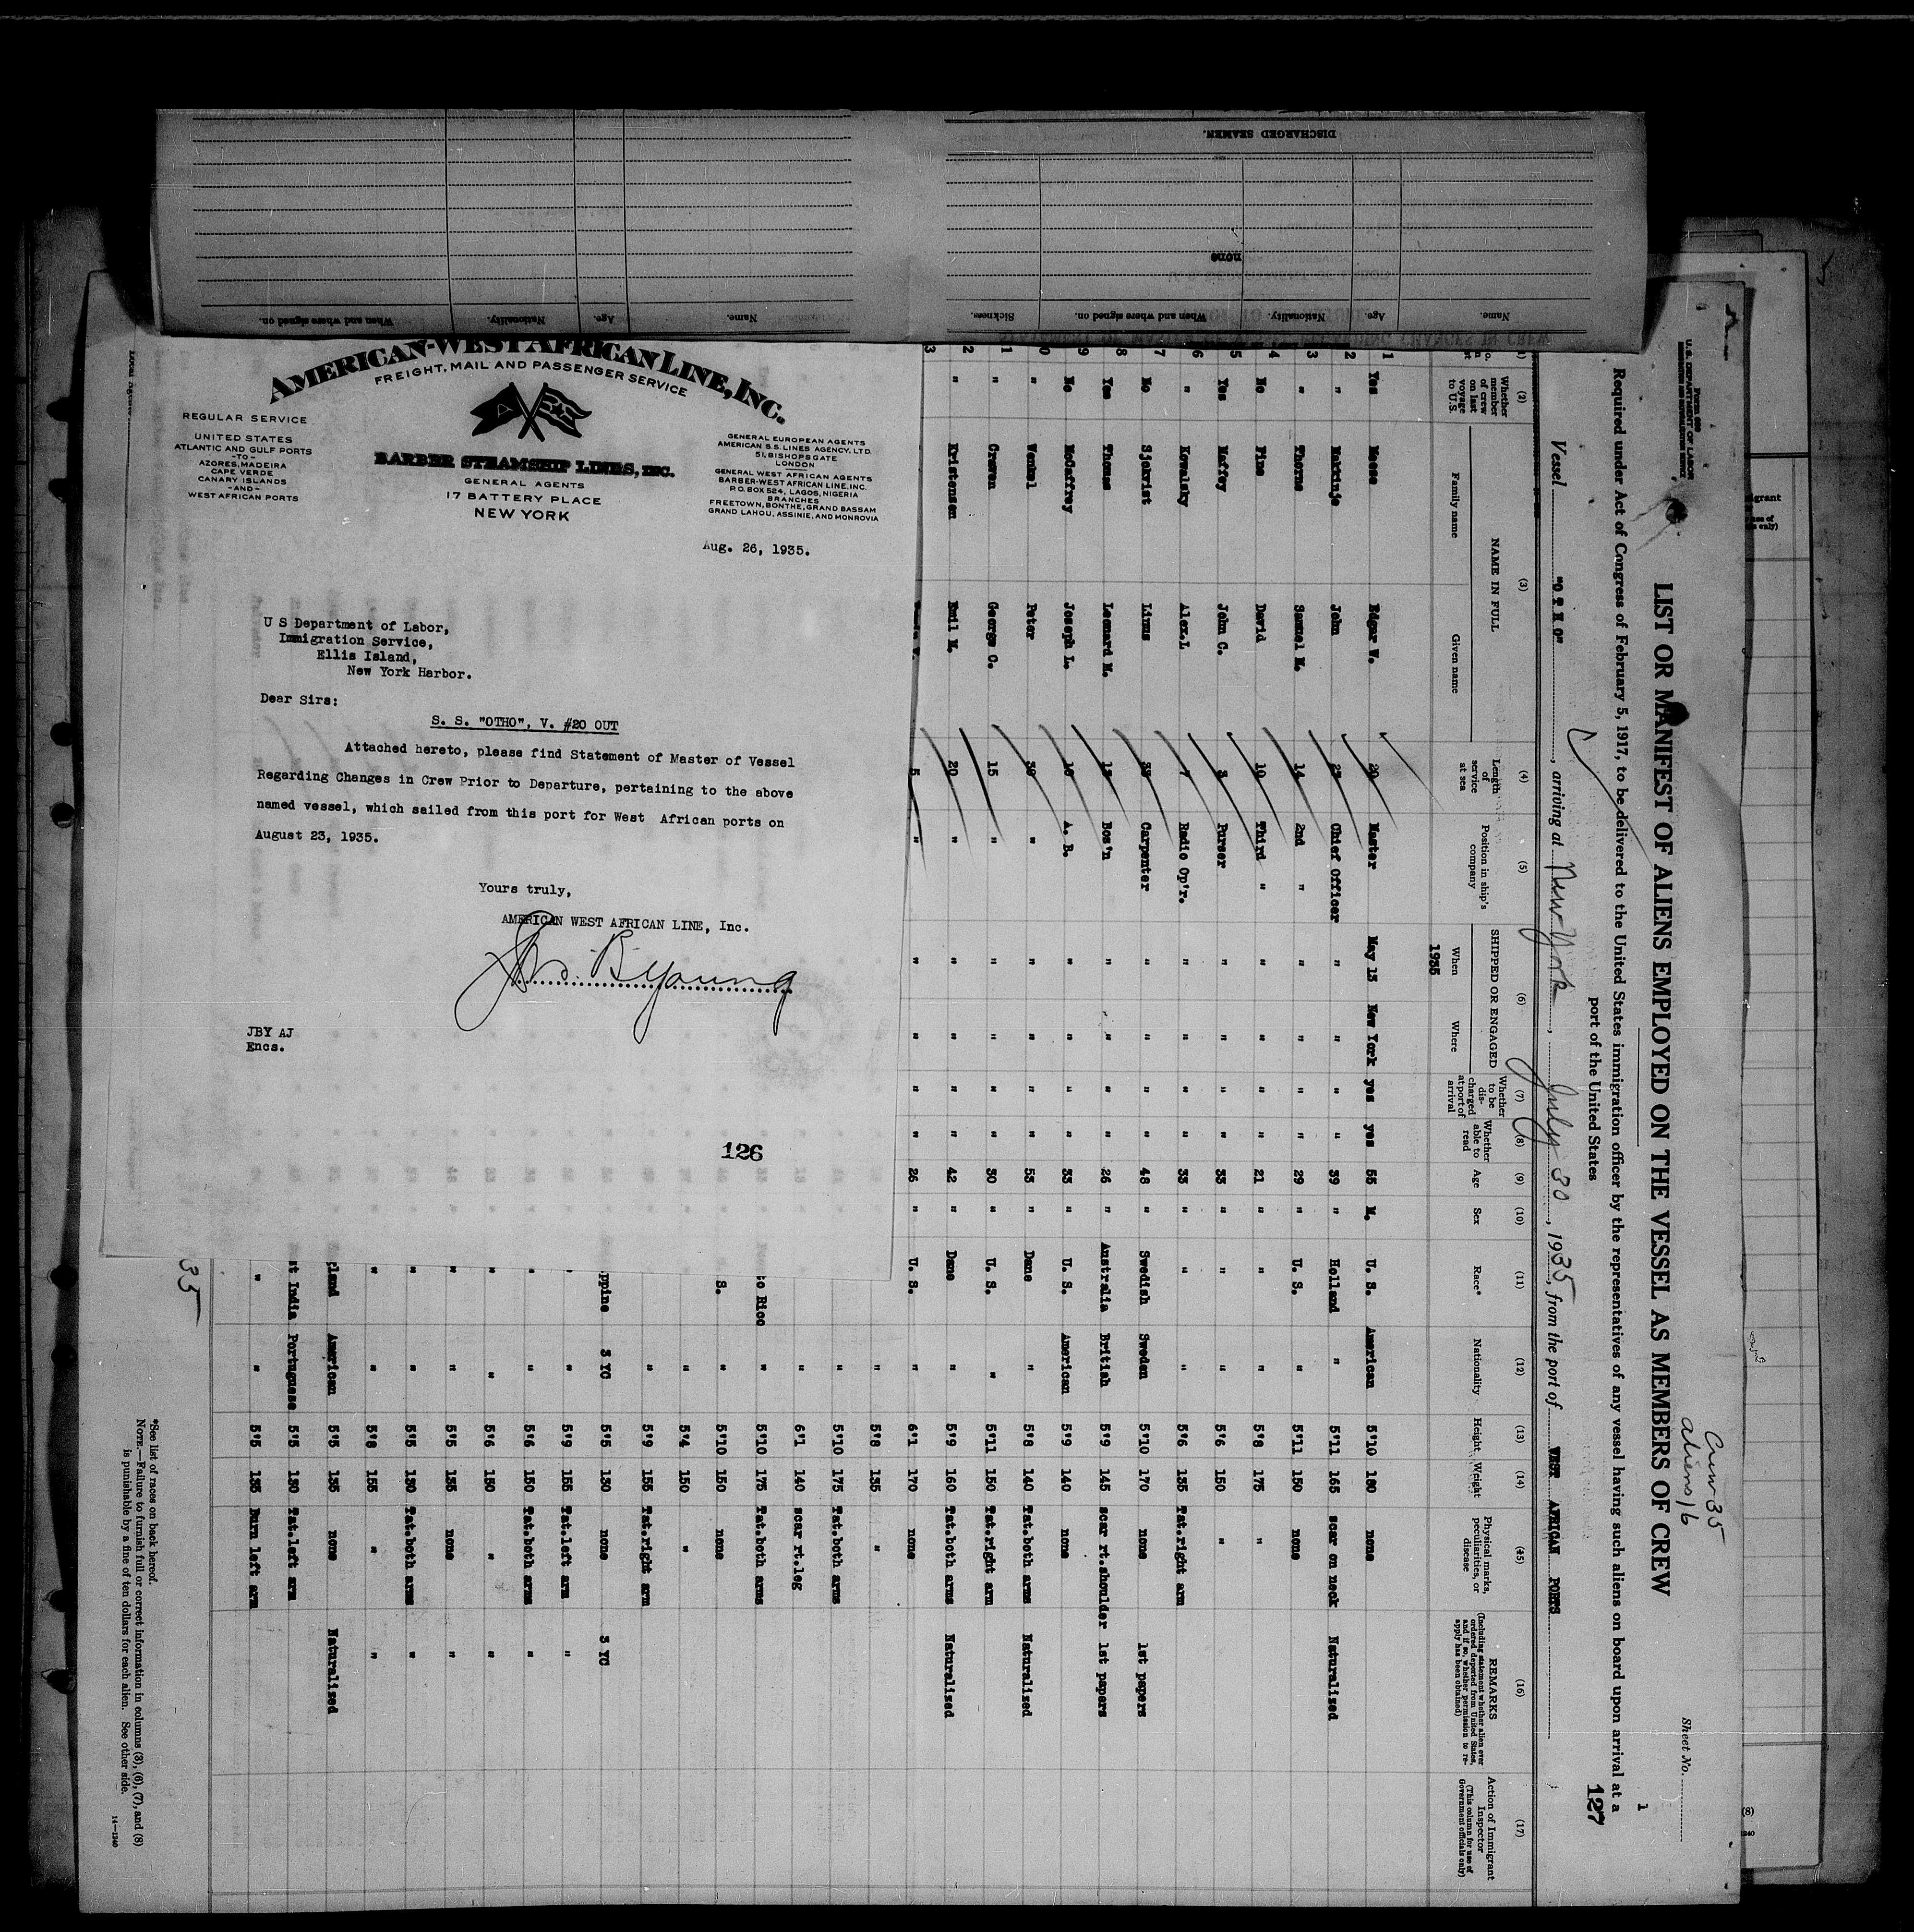 DISCHARGED SEAMEN.
none
Name.
Age.
Nationality.
When and where signed on.
Sickness.
Name.
Age.
Nationality.
When and where signed on.
AMERICAN-WEST AFRICAN LINE, INC.
FREIGHT, MAIL AND PASSENGER SERVICE
REGULAR SERVICE
UNITED STATES
ATLANTIC AND GULF PORTS
-TO-
AZORES, MADEIRA
CAPE VERDE
CANARY ISLANDS
-AND-
WEST AFRICAN PORTS
BARBER STEAMSHIP LINES, INC.
GENERAL AGENTS
17 BATTERY PLACE
NEW YORK
GENERAL EUROPEAN AGENTS
AMERICAN S.S. LINES AGENCY, LTD.
51, BISHOPSGATE
LONDON
GENERAL WEST AFRICAN AGENTS
BARBER-WEST AFRICAN LINE, INC.
P.O. BOX 524, LAGOS, NIGERIA
BRANCHES
FREETOWN, BONTHE, GRAND BASSAM
GRAND LAHOU, ASSINIE, AND MONROVIA
Aug. 26, 1935.
U S Department of Labor,
Immigration Service,
Ellis Island,
New York Harbor.
Dear Sirs:
S. S. "OTHO", V. #20 OUT
Attached hereto, please find Statement of Master of Vessel
Regarding Changes in Crew Prior to Departure, pertaining to the above
named vessel, which sailed from this port for West African ports on
August 23, 1935.
Yours truly,
AMERICAN WEST AFRICAN LINE, Inc.
Jno. B Young
JBY AJ
Encs.
126
Form 680
U.S. DEPARTMENT OF LABOR
Crew 35
aliens 16
Sheet No. 1
127
LIST OR MANIFEST OF ALIENS EMPLOYED ON THE VESSEL AS MEMBERS OF CREW
Required under Act of Congress of February 5, 1917, to be delivered to the United States immigration officer by the representatives of any vessel having such aliens on board upon arrival at a
port of the United States
Vessel "OTHO", arriving at New York, July 30, 1935, from the port of WEST AFRICAN PORTS
(2) (3) (4) (5) (6) (7) (8) (9) (10) (11) (12) (13) (14) (15) (16) (17)
Whether member of crew on last voyage to U.S.
NAME IN FULL
Family name Given name
Length of service at sea
Position in ship's company
SHIPPED OR ENGAGED
When Where
Whether to be discharged at port of arrival
Whether able to read
Age
Sex
Race*
Nationality
Height
Weight
Physical marks, peculiarities, or disease
REMARKS
(Including statement whether alien ever ordered deported from United States, and if so, whether permission to reapply has been obtained)
Action of Immigrant Inspector
(This column for use of Government officials only)
1935
1 Yes Reese Edgar W. 20 Master May 13 New York yes yes 55 M. U. S. American 5'10 180 none
2 " John Chief Officer " " " " 39 " Holland " 5'11 165 scar on neck Naturalized
3 " Thorne Samuel M. 14 2nd " " " " " 29 " U. S. " 5'11 150 none
4 No Pine David 10 Third " " " " " 21 " " " 5'8 175 "
5 Yes Maffey John C. 3 Purser " " " " 33 " " " 5'6 150 "
6 " Kowalsky Alex.L 7 Radio Op'r. " " " " 33 " " " 5'6 135 Tat.right arm
7 No Sjokvist Linus Carpenter " " " " 48 " Swedish Sweden 5'10 170 none 1st papers
8 Yes Thomas Leonard M. Bos'n " " " " 26 " Australia British 5'9 145 scar rt.shoulder 1st papers
9 No McCaffrey Joseph L. A. B. " " " " 33 " U. S. American 5'9 140 none
0 " Wenkel Peter " " " " " 53 " Dane " 5'8 140 Tat.both arms Naturalized
1 " Craven George C. 15 " " " " " 30 " U. S. " 5'11 150 Tat.right arm
2 " Kristensen Emil M. 20 " " " " " 42 " Dane " 5'9 160 Tat.both arms Naturalized
3 5 " " " " " 26 " U. S. " 6'1 170 none
" 5'8 135 "
" 5'10 175 Tat.both arms
" 6'1 140 scar rt.leg
to Rico " 5'10 175 Tat.both arms
S. " 5'10 150 none
" 5'4 150 "
" 5'9 155 Tat.right arm
ppine 3 YC 5'5 130 none 3 YC
" " 5'9 155 Tat.left arm "
" " 5'6 150 Tat.both arms "
" " 5'6 150 " "
" " 5'5 135 none "
" " 5'5 130 Tat.both arms "
" " 5'8 155 " "
land American 5'5 135 none Naturalized
st India Portuguese 5'5 130 Tat.left arm
" " 5'5 135 Burn left arm
35
*See list of races on back hereof.
NOTE.—Failure to furnish full or correct information in columns (3), (6), (7), and (8)
is punishable by a fine of ten dollars for each alien. See other side.
14—1240